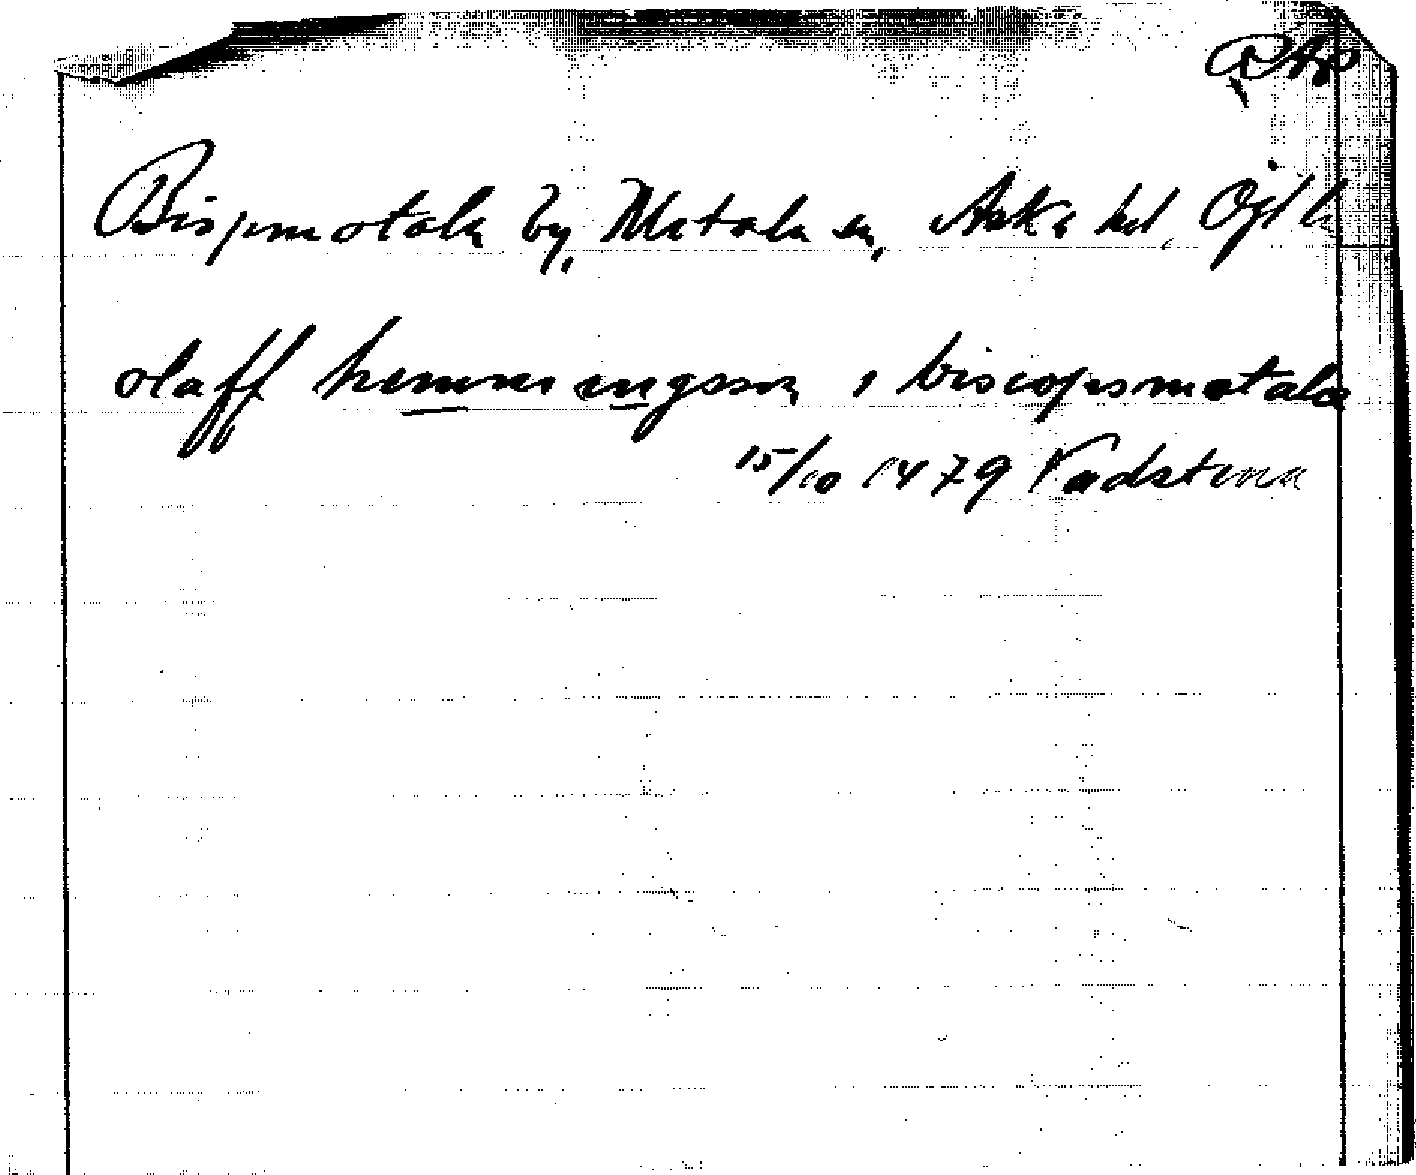 RAp
Bispmotala by, Motala sn, Aska hd, Ögtl
olaff hemmingsson i biscopsmotala
15/10 1479 Vadstena